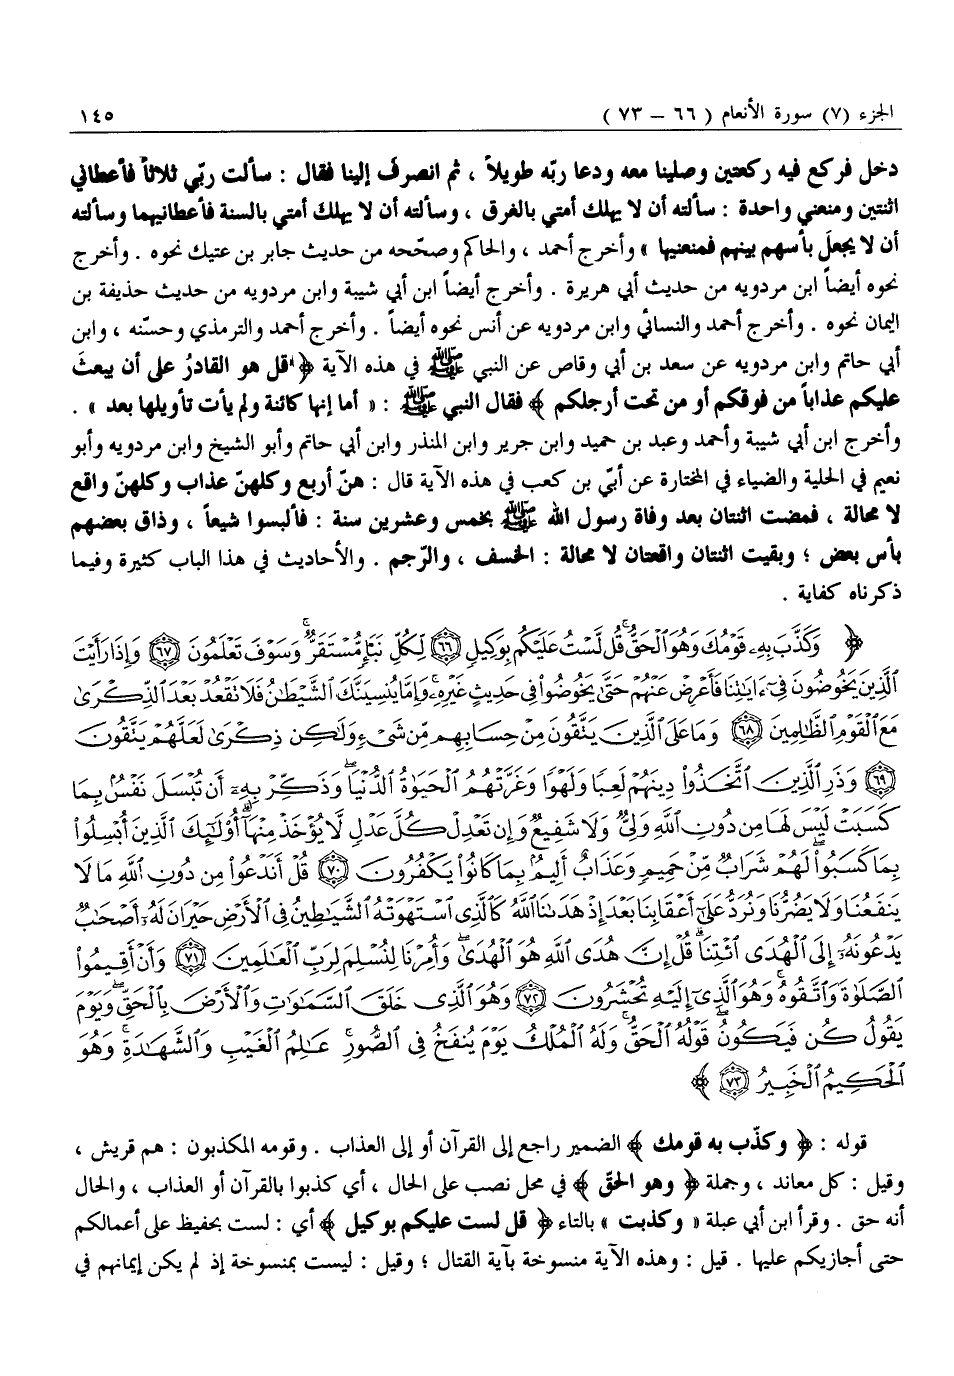 الجزء (٧) سورة الأنعام ( ٦٦ – ٧٣ ) ١٤٥
دخل فركع فيه ركعتين وصلينا معه ودعا ربّه طويلاً ، ثم انصرفَ إلينا فقال : سألت ربّي ثلاثاً فأعطاني
اثنتين ومنعني واحدة : سألته أن لا يهلك أمتي بالغرق ، وسألته أن لا يهلك أمتي بالسنة فأعطانيهما وسألته
أن لا يجعلَ بأسهم بينهم فمنعنيها » وأخرج أحمد ، والحاكم وصحّحه من حديث جابر بن عتيك نحوه . وأخرج
نحوه أيضاً ابن مردويه من حديث أبي هريرة . وأخرج أيضاً ابن أبي شيبة وابن مردويه من حديث حذيفة بن
اليمان نحوه . وأخرج أحمد والنسائي وابن مردويه عن أنس نحوه أيضاً . وأخرج أحمد والترمذي وحسّنه ، وابن
أبي حاتم وابن مردويه عن سعد بن أبي وقاص عن النبي ﷺ في هذه الآية ﴿ قل هو القادرُ على أن يبعثَ
عليكم عذاباً من فوقكم أو من تحت أرجلكم ﴾ فقال النبي ﷺ : « أما إنها كائنة ولم يأت تأويلها بعد » .
وأخرج ابن أبي شيبة وأحمد وعبد بن حميد وابن جرير وابن المنذر وابن أبي حاتم وأبو الشيخ وابن مردويه وأبو
نعيم في الحلية والضياء في المختارة عن أبيّ بن كعب في هذه الآية قال : هنّ أربع وكلهنّ عذاب وكلهنّ واقع
لا محالة ، فمضت اثنتان بعد وفاة رسول الله ﷺ بخمس وعشرين سنة : فألبسوا شيعاً ، وذاق بعضهم
بأس بعض ؛ وبقيت اثنتان واقعتان لا محالة : الخسف ، والرّجم . والأحاديث في هذا الباب كثيرة وفيما
ذكرناه كفاية .
﴿ وَكَذَّبَ بِهِۦ قَوْمُكَ وَهُوَ ٱلْحَقُّ ۚ قُل لَّسْتُ عَلَيْكُم بِوَكِيلٍ ٦٦ لِّكُلِّ نَبَإٍ مُّسْتَقَرٌّ ۚ وَسَوْفَ تَعْلَمُونَ ٦٧ وَإِذَا رَأَيْتَ
ٱلَّذِينَ يَخُوضُونَ فِىٓ ءَايَٰتِنَا فَأَعْرِضْ عَنْهُمْ حَتَّىٰ يَخُوضُوا۟ فِى حَدِيثٍ غَيْرِهِۦ ۚ وَإِمَّا يُنسِيَنَّكَ ٱلشَّيْطَٰنُ فَلَا تَقْعُدْ بَعْدَ ٱلذِّكْرَىٰ
مَعَ ٱلْقَوْمِ ٱلظَّٰلِمِينَ ٦٨ وَمَا عَلَى ٱلَّذِينَ يَتَّقُونَ مِنْ حِسَابِهِم مِّن شَىْءٍ وَلَٰكِن ذِكْرَىٰ لَعَلَّهُمْ يَتَّقُونَ
٦٩ وَذَرِ ٱلَّذِينَ ٱتَّخَذُوا۟ دِينَهُمْ لَعِبًا وَلَهْوًا وَغَرَّتْهُمُ ٱلْحَيَوٰةُ ٱلدُّنْيَا ۚ وَذَكِّرْ بِهِۦٓ أَن تُبْسَلَ نَفْسٌۢ بِمَا
كَسَبَتْ لَيْسَ لَهَا مِن دُونِ ٱللَّهِ وَلِىٌّ وَلَا شَفِيعٌ وَإِن تَعْدِلْ كُلَّ عَدْلٍ لَّا يُؤْخَذْ مِنْهَآ ۗ أُو۟لَٰٓئِكَ ٱلَّذِينَ أُبْسِلُوا۟
بِمَا كَسَبُوا۟ ۖ لَهُمْ شَرَابٌ مِّنْ حَمِيمٍ وَعَذَابٌ أَلِيمٌۢ بِمَا كَانُوا۟ يَكْفُرُونَ ٧٠ قُلْ أَنَدْعُوا۟ مِن دُونِ ٱللَّهِ مَا لَا
يَنفَعُنَا وَلَا يَضُرُّنَا وَنُرَدُّ عَلَىٰٓ أَعْقَابِنَا بَعْدَ إِذْ هَدَىٰنَا ٱللَّهُ كَٱلَّذِى ٱسْتَهْوَتْهُ ٱلشَّيَٰطِينُ فِى ٱلْأَرْضِ حَيْرَانَ لَهُۥٓ أَصْحَٰبٌ
يَدْعُونَهُۥٓ إِلَى ٱلْهُدَى ٱئْتِنَا ۗ قُلْ إِنَّ هُدَى ٱللَّهِ هُوَ ٱلْهُدَىٰ ۖ وَأُمِرْنَا لِنُسْلِمَ لِرَبِّ ٱلْعَٰلَمِينَ ٧١ وَأَنْ أَقِيمُوا۟
ٱلصَّلَوٰةَ وَٱتَّقُوهُ ۚ وَهُوَ ٱلَّذِىٓ إِلَيْهِ تُحْشَرُونَ ٧٢ وَهُوَ ٱلَّذِى خَلَقَ ٱلسَّمَٰوَٰتِ وَٱلْأَرْضَ بِٱلْحَقِّ ۖ وَيَوْمَ
يَقُولُ كُن فَيَكُونُ ۚ قَوْلُهُ ٱلْحَقُّ ۚ وَلَهُ ٱلْمُلْكُ يَوْمَ يُنفَخُ فِى ٱلصُّورِ ۚ عَٰلِمُ ٱلْغَيْبِ وَٱلشَّهَٰدَةِ ۚ وَهُوَ
ٱلْحَكِيمُ ٱلْخَبِيرُ ٧٣ ﴾
قوله : ﴿ وكذّب به قومك ﴾ الضمير راجع إلى القرآن أو إلى العذاب . وقومه المكذبون : هم قريش ،
وقيل : كل معاند ، وجملة ﴿ وهو الحقّ ﴾ في محل نصب على الحال ، أي كذبوا بالقرآن أو العذاب ، والحال
أنه حق . وقرأ ابن أبي عبلة « وكذبت » بالتاء ﴿ قل لست عليكم بوكيل ﴾ أي : لست بحفيظ على أعمالكم
حتى أجازيكم عليها . قيل : وهذه الآية منسوخة بآية القتال ؛ وقيل : ليست بمنسوخة إذ لم يكن إيمانهم في